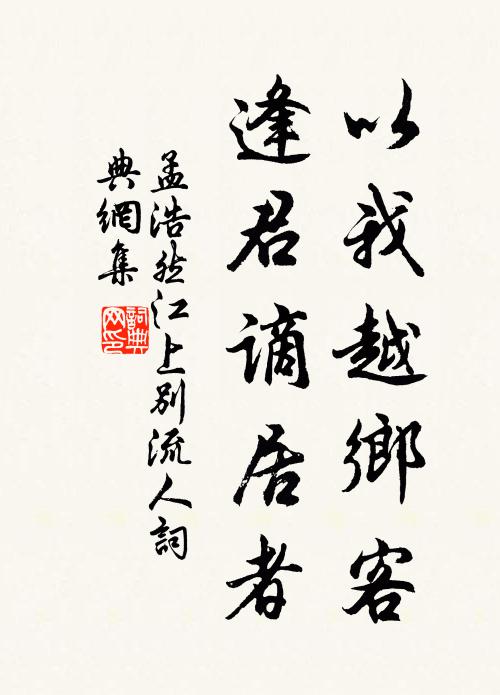 以我越鄉客
逢君謫居者
孟浩然江上別流人詞
典網集
詞典网印